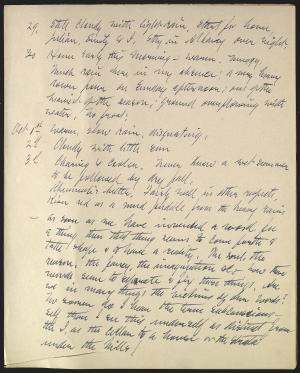 29. Still cloudy with light rain, start for home,
Julian, Emily & I, stay in Albany over night.
30 Home early this morning – warm, muggy,
much rain here in my absence; a very heavy
down pour on Sunday afternoon; one of the
heaviest of the season; ground overflowing with
water, no frost;
Oct. 1st Warm, slow rain, disgusting,
2d Cloudy with little sun
3d Clearing & Cooler. Never knew a wet summer
to be followed by dry fall.
Rheumatic better. Fairly well in other respects.
River red as a mud puddle from the heavy rains
– As soon as we have invented a word for
a thing then that thing seems to come forth &
take shape & to have a reality. The soul, the
reason, the fancy, the imagination &c – how these
words seem to create & fix these things. Are
we in many things the victims of our words?
self then
the I, as the to a house or the
under the hills!